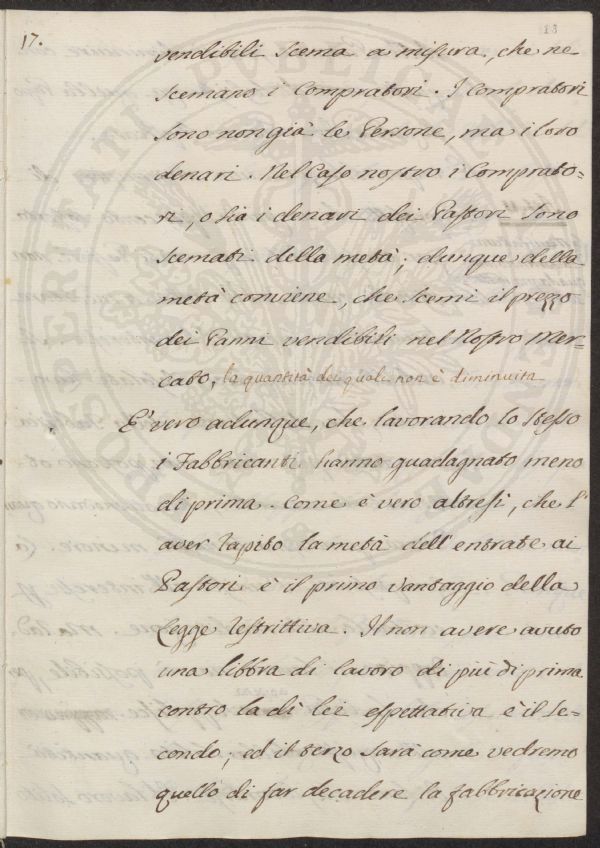 17.
18
vendibili scema a misura, che ne
scemano i Compratori. I Compratori
sono non già le Persone, ma i loro
denari. Nel Caso nostro i Comprato-
ri, o sia i denari dei Pastori sono
scemati della metà; dunque della
metà conviene, che scemi il prezzo
dei Panni vendibili nel Nostro Mer-
cato, la quantità dei quali non è diminuita
E' vero adunque, che lavorando lo stesso
i Fabbricanti hanno guadagnato meno
di prima. Come è vero altresì, che l'
aver rapito la metà dell'entrate ai
Pastori è il primo vantaggio della
Legge restrittiva. Il non avere avuto
una libbra di lavoro di più di prima
contro la di lei espettativa è il se-
condo; ed il terzo sarà come vedremo
quello di far decadere la fabbricazione
PROSPERITATI PUBLICAE